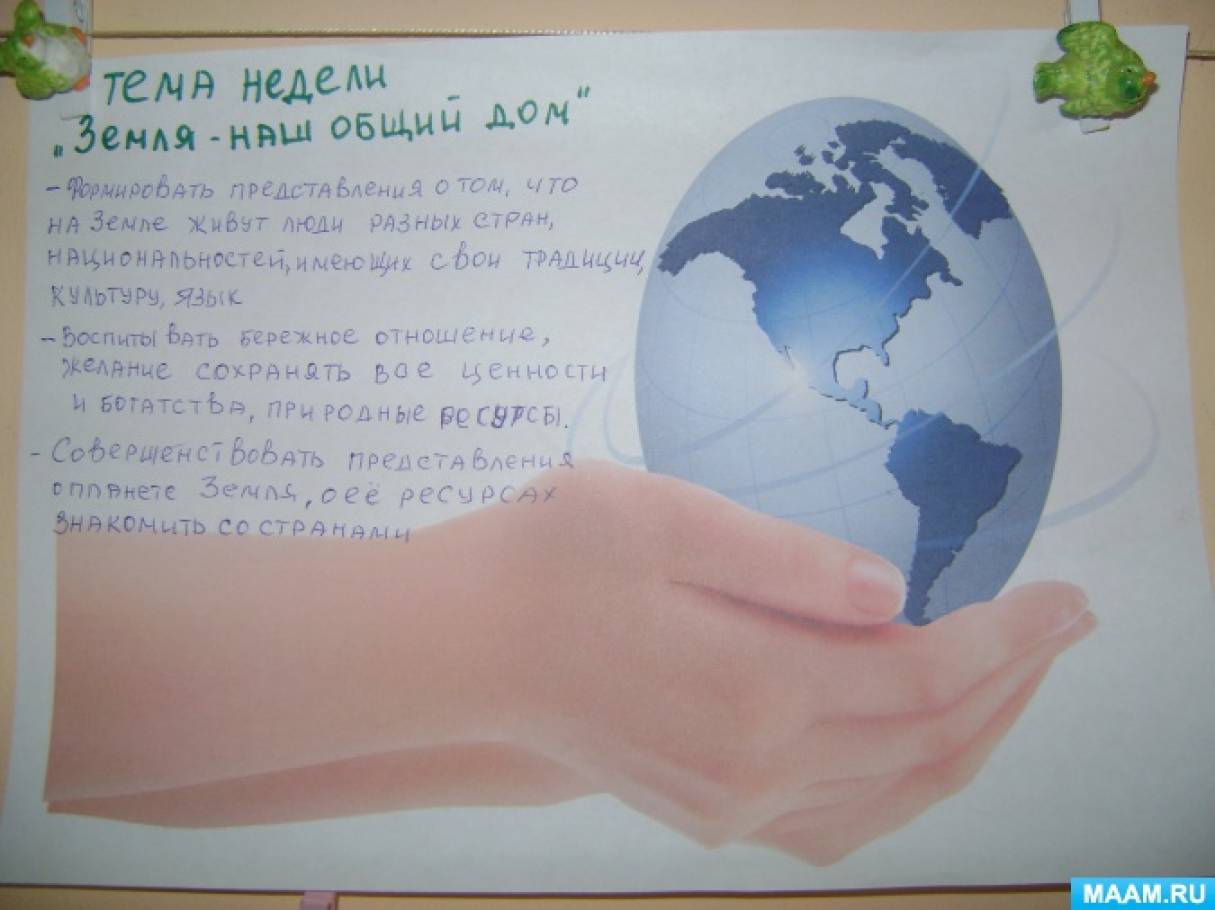 тема недели
„Земля - наш общий дом"
- Формировать представления о том, что
на Земле живут люди разных стран,
национальностей, имеющих свои традиции,
культуру, язык
- Воспитывать бережное отношение,
желание сохранять все ценности
и богатства, природные ресурсы.
- Совершенствовать представления
о планете Земля, о её ресурсах
знакомить со странами
MAAM.RU